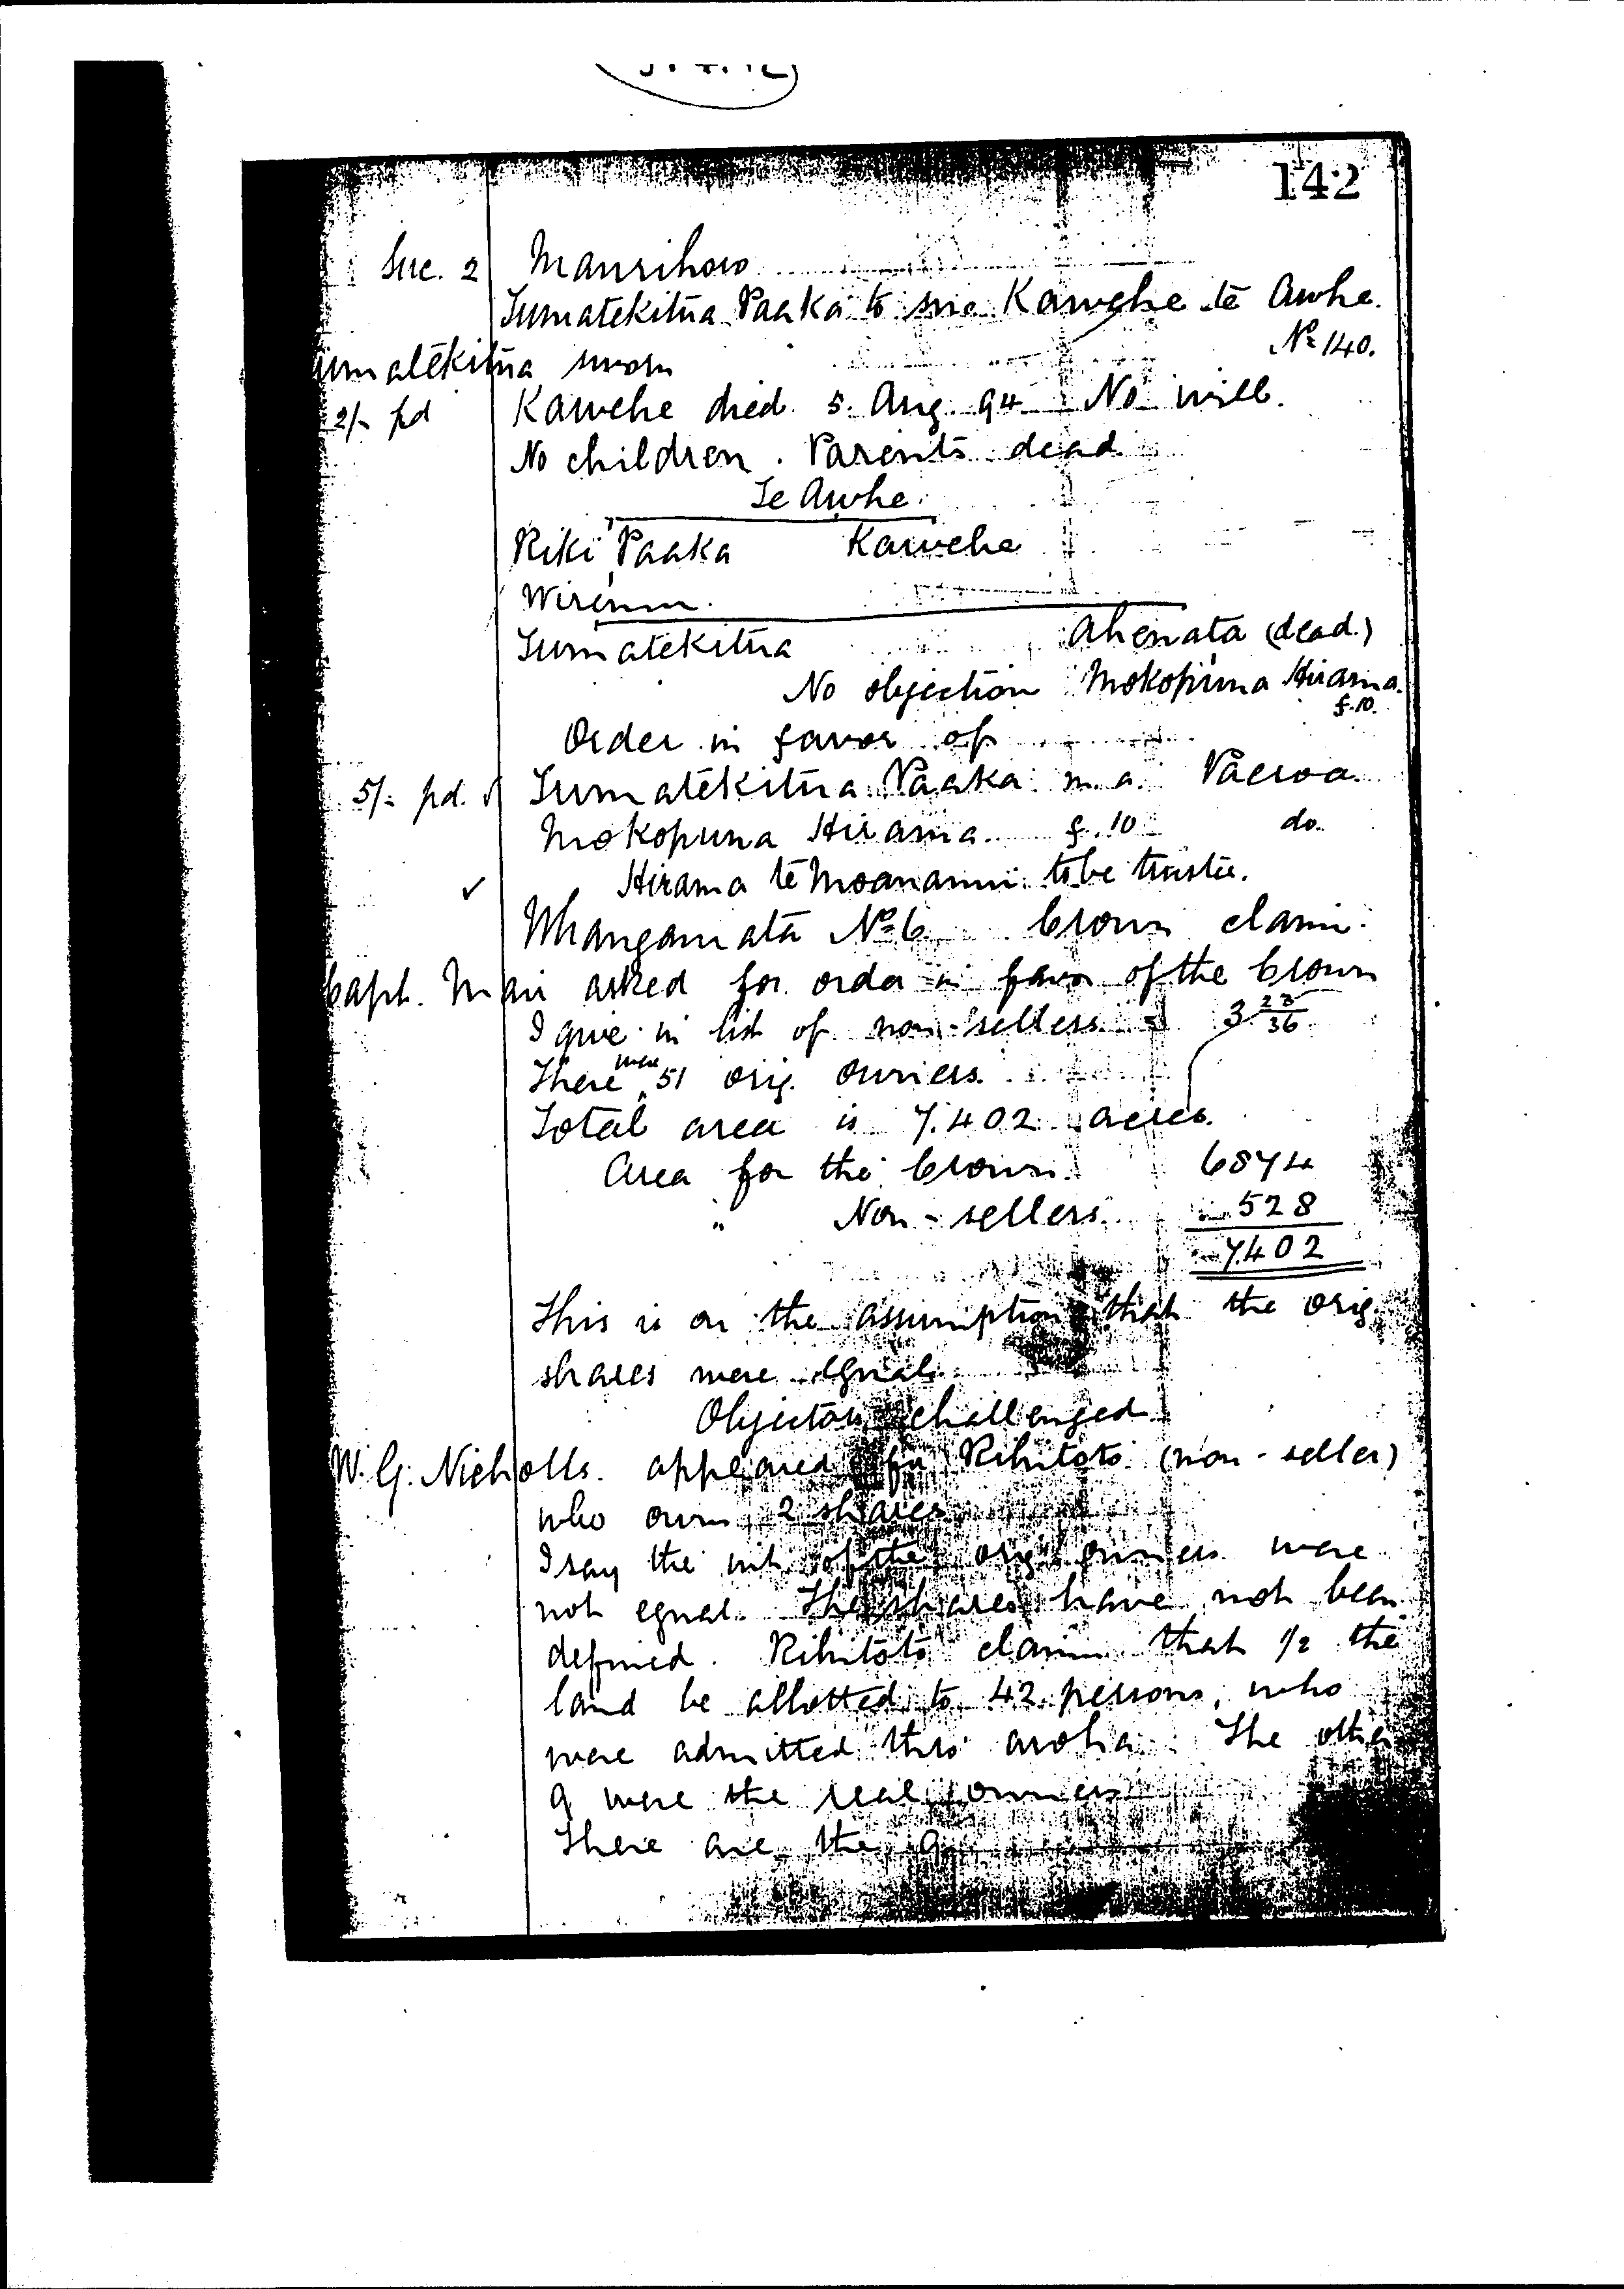 142
Suc. 2 Maurihoro
Tumatekitua Paaka to suc. Kawehe te Awhe.
No 140.
umatekitua sworn
2/- pd Kawehe died 5. Aug. 94 No will.
No children. Parents dead
Te Awhe.
Riki Paaka Kawehe
Wiremu.
Tumatekitua Ahenata (dead.)
No objection Mokopuna Hirama.
f. 10.
Order in favor of
5/- pd. Tumatekitua Paaka m. a. Paeroa.
Mokopuna Hirama f. 10 do.
✓ Hirama te Moananui to be trustee.
Whangamata No 6 Crown claim.
Capt. Mair asked for order in favor of the Crown
I give in list of non-sellers = 3 23/36
There were 51 orig. owners.
Total area is 7.402 acres.
Area for the Crown. 6874
" Non-sellers. 528
7.402
This is on the assumption that the orig.
shares were equal.
Objectors challenged
W. G. Nicholls. appeared for Rihitoto (non-seller)
who owns 2 shares
I say the int. of the orig. owners were
not equal. The shares have not been
defined. Rihitoto claims that 1/2 the
land be allotted to 42 persons, who
were admitted thro' aroha. The other
9 were the real owners
These are the 9